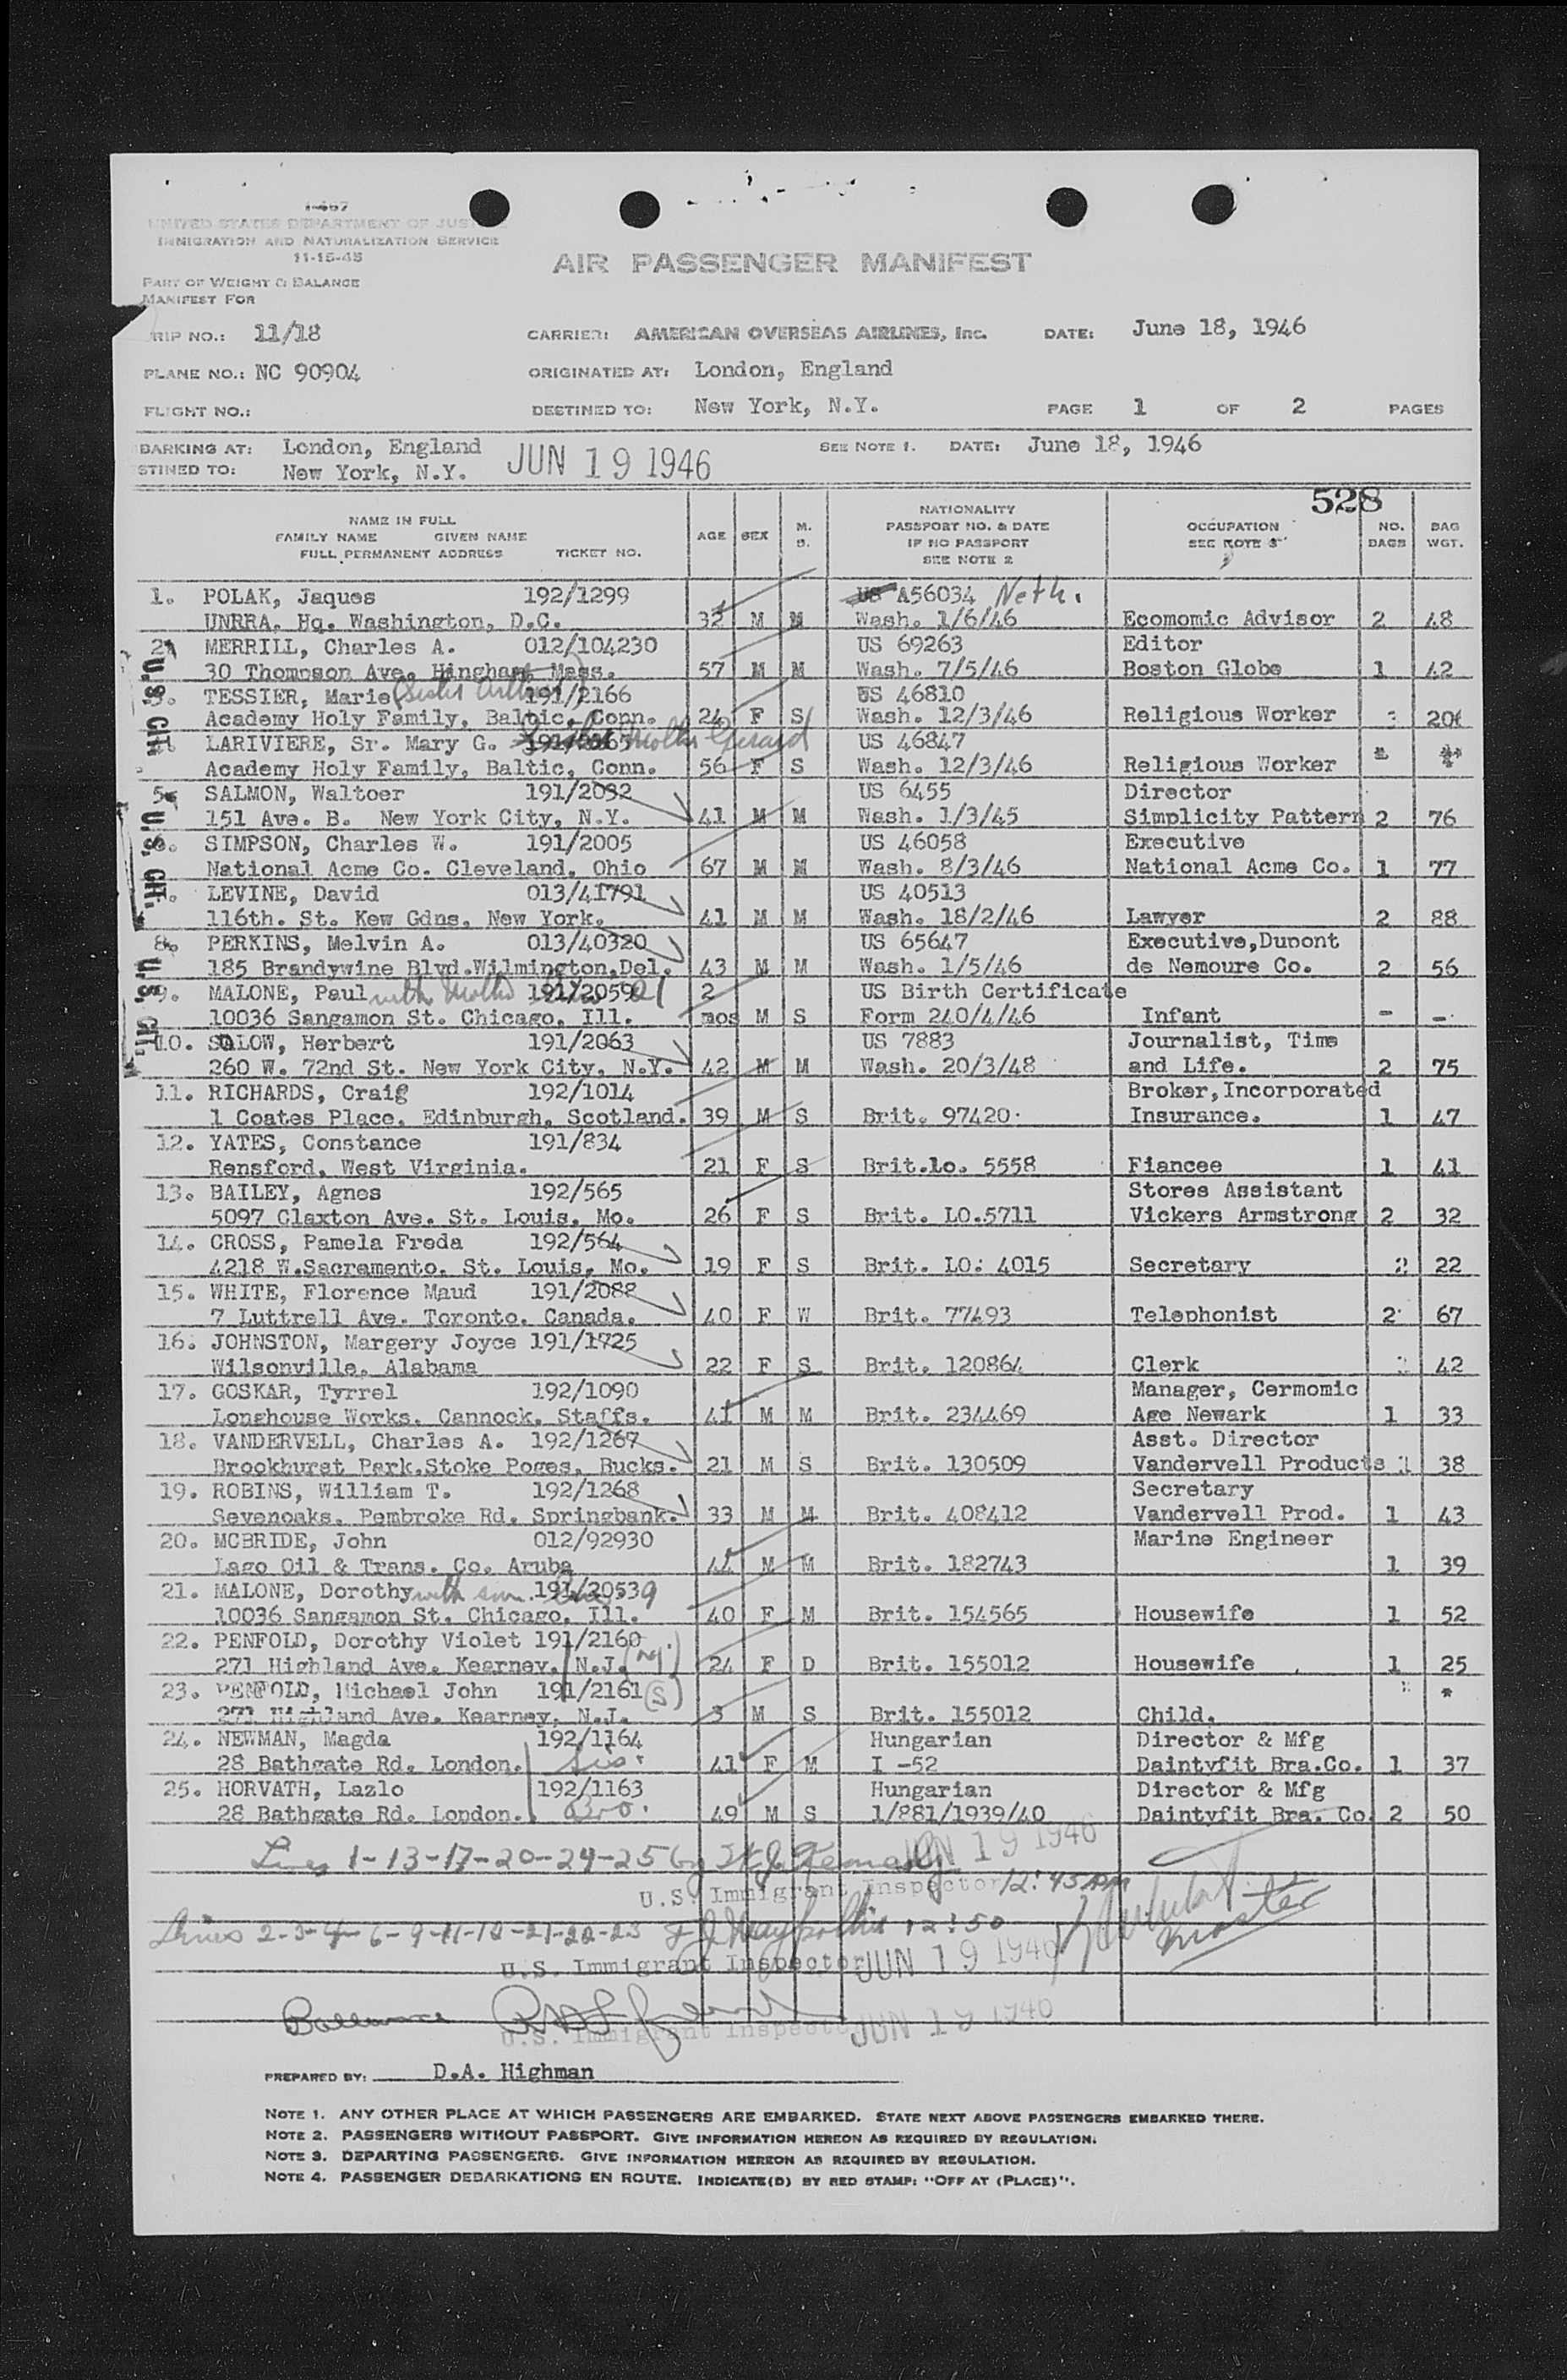 I-467
UNITED STATES DEPARTMENT OF JUS
IMMIGRATION AND NATURALIZATION SERVICE
11-15-45
AIR PASSENGER MANIFEST
PART OF WEIGHT & BALANCE
MANIFEST FOR
RIP NO.: 11/18 CARRIER: AMERICAN OVERSEAS AIRLINES, Inc. DATE: June 18, 1946
PLANE NO.: NC 90904 ORIGINATED AT: London, England
FLIGHT NO.: DESTINED TO: New York, N.Y. PAGE 1 OF 2 PAGES
BARKING AT: London, England SEE NOTE 1. DATE: June 18, 1946
STINED TO: New York, N.Y. JUN 19 1946
528
NAME IN FULL
FAMILY NAME GIVEN NAME
FULL PERMANENT ADDRESS TICKET NO. AGE SEX M. S. NATIONALITY PASSPORT NO. & DATE IF NO PASSPORT SEE NOTE 2 OCCUPATION SEE NOTE 3 NO. BAGS BAG WGT.
1. POLAK, Jaques 192/1299 US A56034 Neth.
UNRRA. Hq. Washington, D.C. 32 M M Wash. 1/6/46 Ecomomic Advisor 2 48
2. MERRILL, Charles A. 012/104230 US 69263 Editor
30 Thompson Ave. Hingham, Mass. 57 M M Wash. 7/5/46 Boston Globe 1 42
3. TESSIER, Marie 191/2166 US 46810
Academy Holy Family, Baltic, Conn. 24 F S Wash. 12/3/46 Religious Worker 3 20
LARIVIERE, Sr. Mary G. Mother Gerard US 46847
Academy Holy Family, Baltic, Conn. 56 F S Wash. 12/3/46 Religious Worker
5. SALMON, Waltoer 191/2032 US 6455 Director
151 Ave. B. New York City, N.Y. 41 M M Wash. 1/3/45 Simplicity Pattern 2 76
6. SIMPSON, Charles W. 191/2005 US 46058 Executive
National Acme Co. Cleveland, Ohio 67 M M Wash. 8/3/46 National Acme Co. 1 77
7. LEVINE, David 013/41791 US 40513
116th. St. Kew Gdns, New York. 41 M M Wash. 18/2/46 Lawyer 2 88
8. PERKINS, Melvin A. 013/40320 US 65647 Executive,Dupont
185 Brandywine Blvd.Wilmington,Del. 43 M M Wash. 1/5/46 de Nemoure Co. 2 56
9. MALONE, Paul with Mother 191/2059 21 2 US Birth Certificate
10036 Sangamon St. Chicago, Ill. mos M S Form 240/4/46 Infant - -
10. SOLOW, Herbert 191/2063 US 7883 Journalist, Time
260 W. 72nd St. New York City, N.Y. 42 M M Wash. 20/3/48 and Life. 2 75
11. RICHARDS, Craig 192/1014 Broker,Incorporated
1 Coates Place, Edinburgh, Scotland. 39 M S Brit. 97420 Insurance. 1 47
12. YATES, Constance 191/834
Rensford, West Virginia. 21 F S Brit.lo. 5558 Fiancee 1 41
13. BAILEY, Agnes 192/565 Stores Assistant
5097 Claxton Ave. St. Louis, Mo. 26 F S Brit. LO.5711 Vickers Armstrong 2 32
14. CROSS, Pamela Freda 192/564
4218 W.Sacramento, St. Louis, Mo. 19 F S Brit. LO. 4015 Secretary 2 22
15. WHITE, Florence Maud 191/2088
7 Luttrell Ave. Toronto, Canada. 40 F W Brit. 77493 Telephonist 2 67
16. JOHNSTON, Margery Joyce 191/1725
Wilsonville, Alabama 22 F S Brit. 120864 Clerk 42
17. GOSKAR, Tyrrel 192/1090 Manager, Cermomic
Longhouse Works, Cannock, Staffs. 41 M M Brit. 234469 Age Newark 1 33
18. VANDERVELL, Charles A. 192/1267 Asst. Director
Brookhurst Park,Stoke Poges, Bucks. 21 M S Brit. 130509 Vandervell Products 1 38
19. ROBINS, William T. 192/1268 Secretary
Sevenoaks, Pembroke Rd. Springbank. 33 M M Brit. 408412 Vandervell Prod. 1 43
20. MCBRIDE, John 012/92930 Marine Engineer
Lago Oil & Trans. Co. Aruba 44 M M Brit. 182743 1 39
21. MALONE, Dorothy with son 191/2053 9
10036 Sangamon St. Chicago, Ill. 40 F M Brit. 154565 Housewife 1 52
22. PENFOLD, Dorothy Violet 191/2160
271 Highland Ave. Kearney, N.J. (M) 24 F D Brit. 155012 Housewife 1 25
23. PENFOLD, Michael John 191/2161 (S) *
271 Highland Ave. Kearney, N.J. 3 M S Brit. 155012 Child.
24. NEWMAN, Magda 192/1164 Hungarian Director & Mfg
28 Bathgate Rd. London. sis. 41 F M I -52 Daintyfit Bra.Co. 1 37
25. HORVATH, Lazlo 192/1163 Hungarian Director & Mfg
28 Bathgate Rd. London. Bro. 49 M S 1/881/1939/40 Daintyfit Bra. Co. 2 50
U.S. CIT.
U.S. CIT.
U.S. CIT.
Lines 1-13-17-20-24-25 by JUN 19 1946
U.S. Immigrant Inspector 12:45 PM
Lines 2-3-4-6-9-11-12-21-22-23 12:50
U.S. Immigrant Inspector JUN 19 1946
Master
Balance
U.S. Immigrant Inspector JUN 19 1946
PREPARED BY: D.A. Highman
NOTE 1. ANY OTHER PLACE AT WHICH PASSENGERS ARE EMBARKED. STATE NEXT ABOVE PASSENGERS EMBARKED THERE.
NOTE 2. PASSENGERS WITHOUT PASSPORT. GIVE INFORMATION HEREON AS REQUIRED BY REGULATION.
NOTE 3. DEPARTING PASSENGERS. GIVE INFORMATION HEREON AS REQUIRED BY REGULATION.
NOTE 4. PASSENGER DEBARKATIONS EN ROUTE. INDICATE(D) BY RED STAMP: "OFF AT (PLACE)".